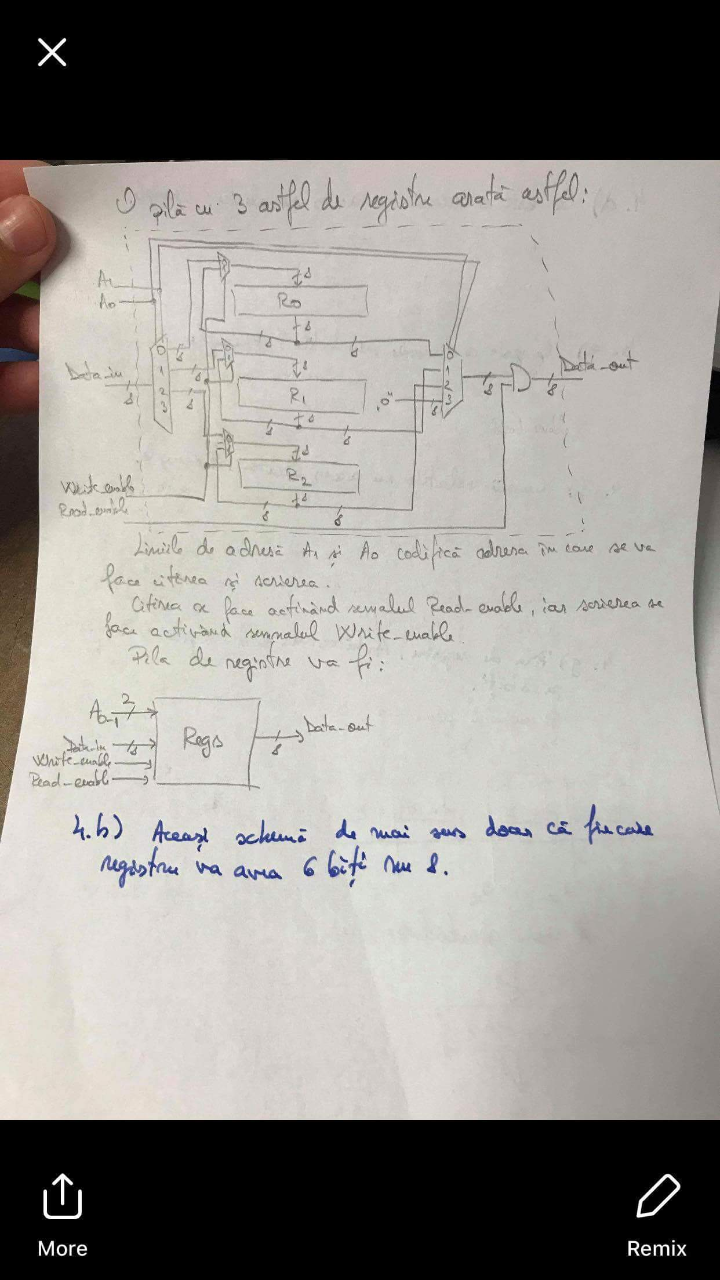 O pilă cu 3 astfel de registre arată astfel:
A1
A0
Data_in
8
0
1
2
3
8
8
8
R0
8
8
8
8
R1
8
8
8
8
R2
8
8
8
8
„0"
8
0
1
2
3
8
Data_out
8
Write_enable
Read_enable
Liniile de adresă A1 și A0 codifică adresa în care se va
face citirea și scrierea.
Citirea se face activând semnalul Read_enable, iar scrierea se
face activând semnalul Write_enable.
Pila de registre va fi:
A0-1
2
Data_in
8
Write_enable
Read_enable
Regs
8
Data_out
4.b) Aceași schemă de mai sus doar că fiecare
registru va avea 6 biți nu 8.
More
Remix